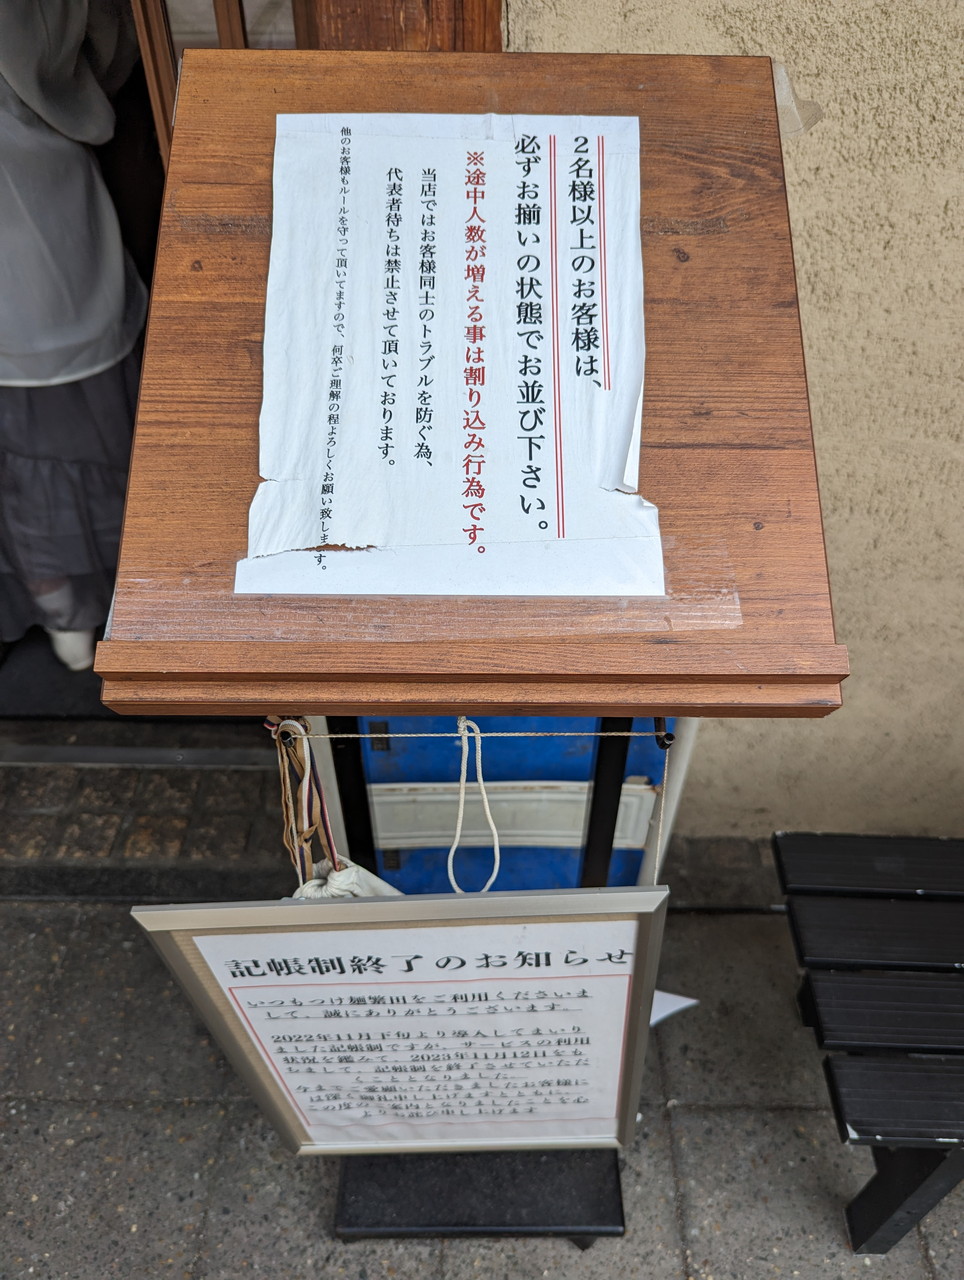 2名様以上のお客様は、
必ずお揃いの状態でお並び下さい。
※途中人数が増える事は割り込み行為です。
当店ではお客様同士のトラブルを防ぐ為、
代表者待ちは禁止させて頂いております。
他のお客様もルールを守って頂いてますので、何卒ご理解の程よろしくお願い致します。
記帳制終了のお知らせ
いつもつけ麺繁田をご利用くださいま
して、誠にありがとうございます。
2022年11月下旬より導入してまいり
ました記帳制ですが、サービスの利用
状況を鑑みて、2023年11月12日をも
ちまして、記帳制を終了させていただ
くこととなりました。
今までご愛顧いただきましたお客様に
は深く御礼申し上げますとともに、
この度のご案内となりましたことを心
よりお詫び申し上げます